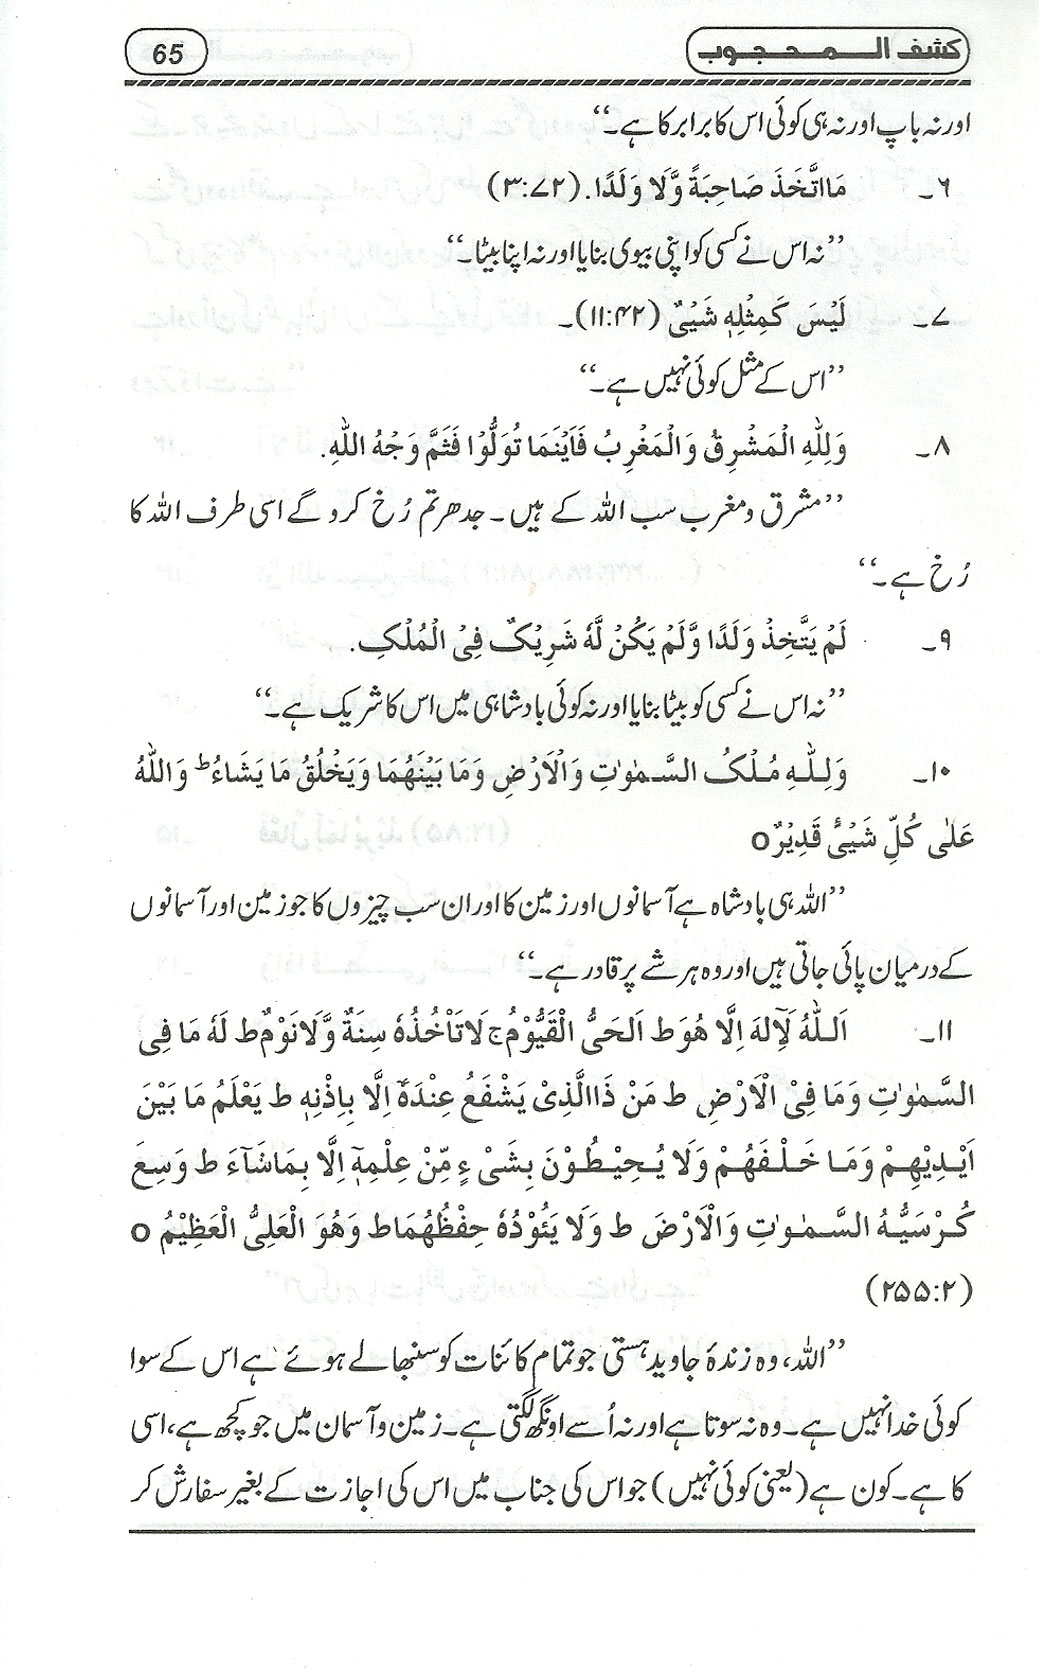 کشف المحجوب
65
اور نہ باپ اور نہ ہی کوئی اس کا برابر کا ہے۔‘‘
٦۔ مَااتَّخَذَ صَاحِبَةً وَّلَا وَلَدًا. (۳:۷۲)
’’نہ اس نے کسی کو اپنی بیوی بنایا اور نہ اپنا بیٹا۔‘‘
۷۔ لَیْسَ کَمِثْلِہٖ شَیْیٌٔ (۱۱:۴۲)۔
’’اس کے مثل کوئی نہیں ہے۔‘‘
۸۔ وَلِلّٰہِ الْمَشْرِقُ وَالْمَغْرِبُ فَاَیْنَمَا تُوَلُّوْا فَثَمَّ وَجْہُ اللّٰہِ.
’’مشرق و مغرب سب اللہ کے ہیں۔ جدھر تم رُخ کرو گے اسی طرف اللہ کا
رُخ ہے۔‘‘
۹۔ لَمْ یَتَّخِذْ وَلَدًا وَّلَمْ یَکُنْ لَّہٗ شَرِیْکٌ فِی الْمُلْکِ.
’’نہ اس نے کسی کو بیٹا بنایا اور نہ کوئی بادشاہی میں اس کا شریک ہے۔‘‘
۱۰۔ وَلِلّٰہِ مُلْکُ السَّمٰوٰتِ وَالْاَرْضِ وَمَا بَیْنَھُمَا وَیَخْلُقُ مَا یَشَاءُ ط وَاللّٰہُ
عَلٰی کُلِّ شَیْیٍٔ قَدِیْرٌ o
’’اللہ ہی بادشاہ ہے آسمانوں اور زمین کا اور ان سب چیزوں کا جو زمین اور آسمانوں
کے درمیان پائی جاتی ہیں اور وہ ہر شے پر قادر ہے۔‘‘
۱۱۔ اَللّٰہُ لَآاِلٰہَ اِلَّا ھُوَ ط اَلْحَیُّ الْقَیُّوْمُ ج لَاتَاْخُذُہٗ سِنَةٌ وَّلَانَوْمٌ ط لَہٗ مَا فِی
السَّمٰوٰتِ وَمَا فِیْ الْاَرْضِ ط مَنْ ذَاالَّذِیْ یَشْفَعُ عِنْدَہٗٓ اِلَّا بِاِذْنِہٖ ط یَعْلَمُ مَا بَیْنَ
اَیْدِیْھِمْ وَمَا خَلْفَھُمْ وَلَا یُحِیْطُوْنَ بِشَیْ ءٍ مِّنْ عِلْمِہٖٓ اِلَّا بِمَاشَآءَ ط وَسِعَ
کُرْسَیُّہُ السَّمٰوٰتِ وَالْاَرْضَ ط وَلَا یَئُوْدُہٗ حِفْظُھُمَا ط وَھُوَ الْعَلِیُّ الْعَظِیْمُ o
(۲۵۵:۲)
’’اللہ، وہ زندۂ جاوید ہستی جو تمام کائنات کو سنبھالے ہوئے ہے اس کے سوا
کوئی خدا نہیں ہے۔ وہ نہ سوتا ہے اور نہ اُسے اونگھ لگتی ہے۔ زمین و آسمان میں جو کچھ ہے، اسی
کا ہے۔ کون ہے (یعنی کوئی نہیں) جو اس کی جناب میں اس کی اجازت کے بغیر سفارش کر